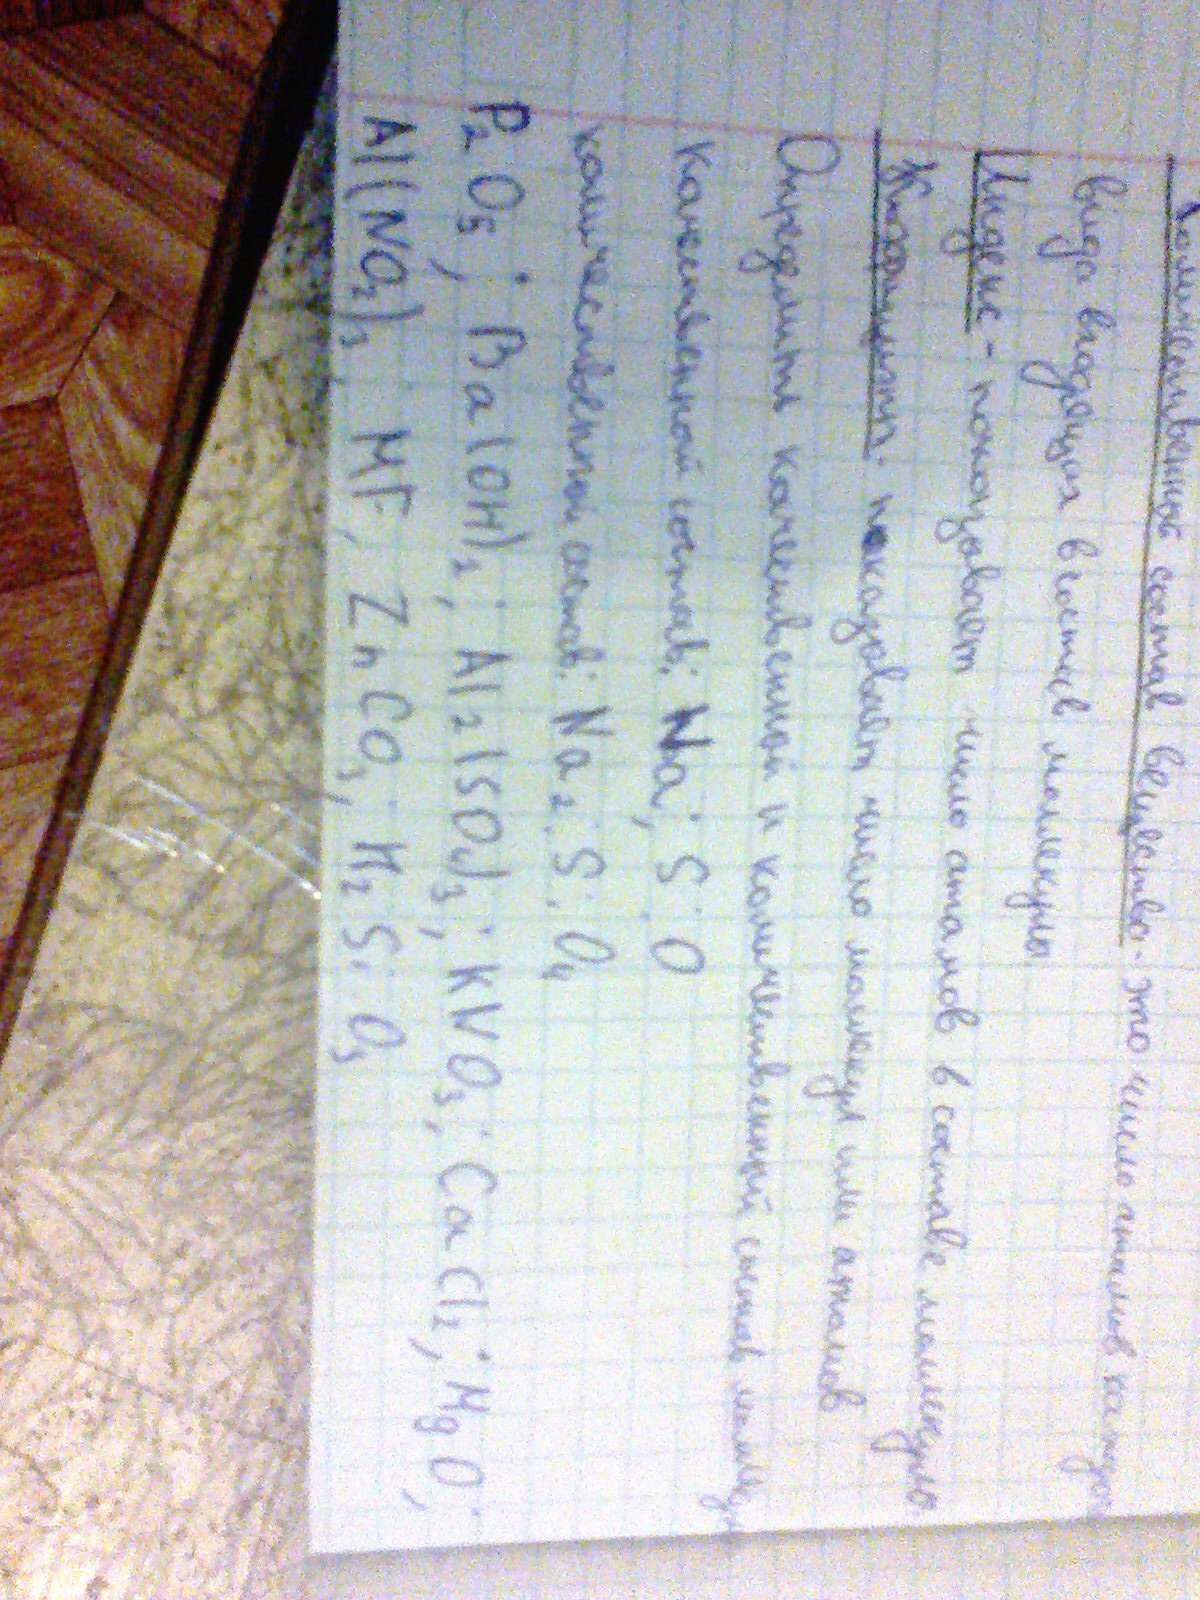 Количественной состав вещества- это число атомов каждого
вида входящих в состав моллекулы
Индекс - показывает число атомов в составе моллекулы
Коэфицент- показывает число моллекул или атомов
Определить качественной и количественный состав моллеку
Качественной состав; Na; S; O
количественной состав: Na2; S; O4
P2O5; Ba(OH)2; Al2(SO4)3; KNO3; CaCl2; MgO;
Al(NO3)3, MF, ZnCO3; H2SiO3